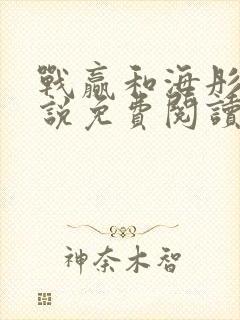 戰贏和海彤
說免費閱讀
神奈木智